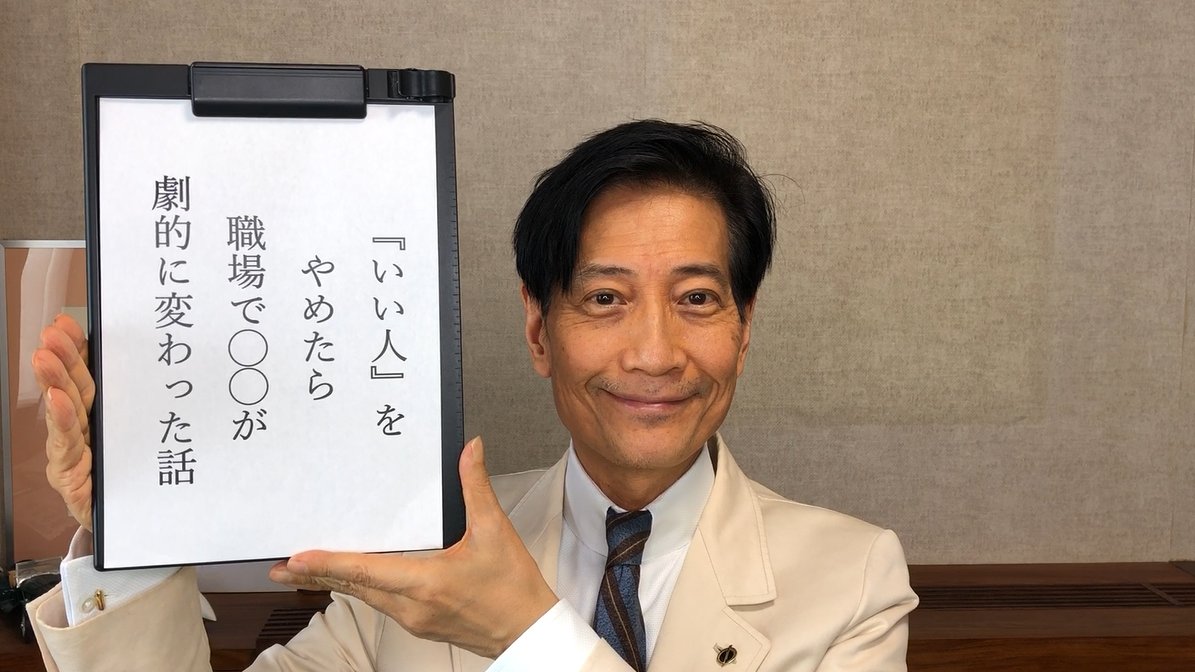 『いい人』を
やめたら
職場で〇〇が
劇的に変わった話